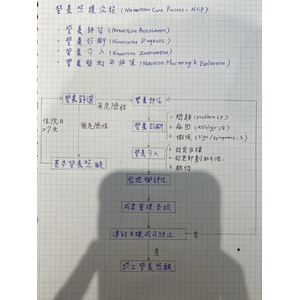 營養照護流程 (Nutrition Care Process, NCP)
營養評估 (Nutrition Assessment)
營養診斷 (Nutrition Diagnosis)
營養介入 (Nutrition Intervention)
營養監測和評值 (Nutrition Monitoring & Evaluation)
營養篩選
有危險性
營養評估
住院日
>7天
無危險性
營養診斷
1. 問題 (problem) P
2. 病因 (etiology) E
3. 徵候 (sign/symptoms) S
基本營養照顧
營養介入
1. 設定目標
3. 執行
監控與評估
成果管理系統
達到目標或可終止
否
是
終止營養照顧